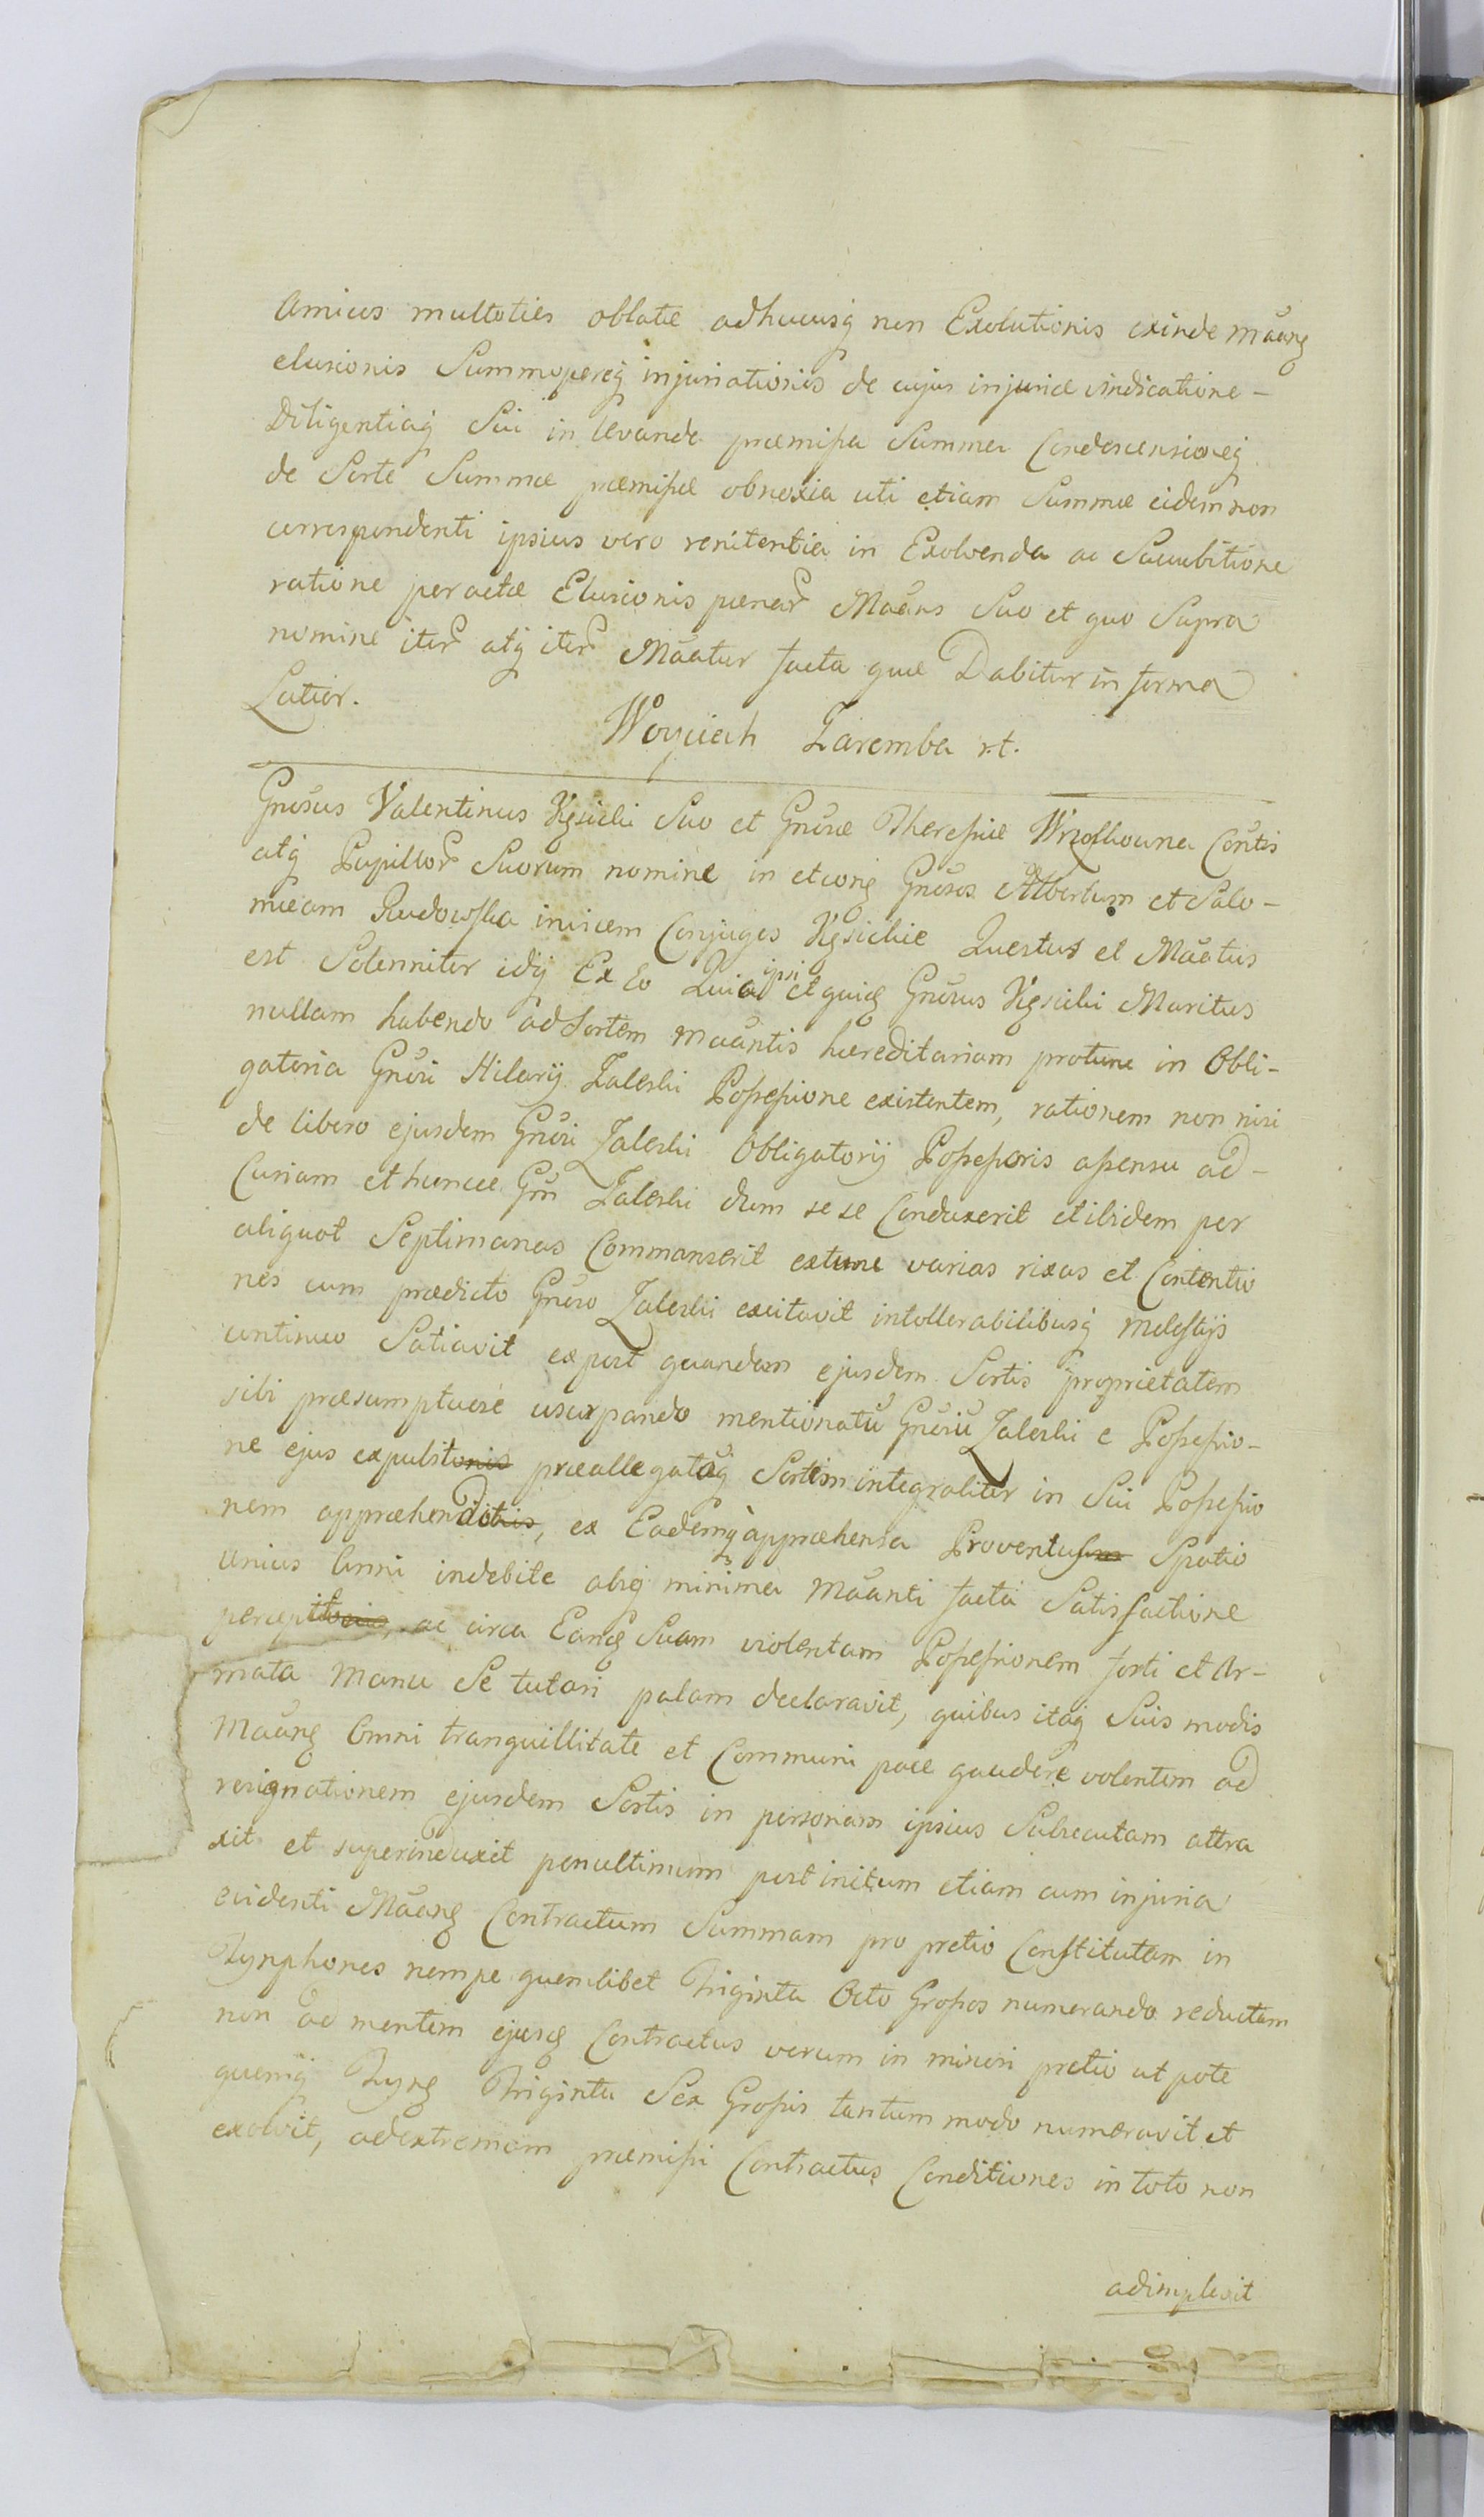 Amicus multoties oblatæ adhucusq non Exolutionis exinde māang
elusionis Summopereq injuriationis de cujus injuriæ vindicatione –
Diligentiaq Sui in levanda præmissa Summa Condescensioneq
de Sorte Summæ præmissæ obnoxia uti etiam Summæ eidem non
correspondenti ipsius vero renitentia in Exolvenda ac Sucubitione
ratione peractæ Elusionis pænar Maāns Suo et quo Supra
nomine iter atq iter Māatur facta quæ Dabitur in forma
Latior.
Woyciech Zaremba rt.
Gnosus Valentinus Kęsicki Suo et Gnosæ Theressiæ Wrzoskowna Contis
atq Pupillor Suorum nomine in et cong Gnosos Albertum et Salo-
meam Rudowska invicem Conjuges Kęsickie Questus et Maātus
est Solenniter idq Ex Eo Quia ipsi et quidg Gnosus Kęsicki Maritus
nullam habendo ad Sortem maāntis hæreditariam protunc in Obli-
gatoria Gnosi Hilarij Zaleski Possessione existentem, rationem non nisi
de libero ejusdem Gnosi Zaleski Obligatorij Possessoris assensu ad-
Curiam et huncce Gm Zaleski dum sese Conduxerit et ibidem per
aliquot Septimanas Commanserit extunc varias rixas et Contentio
nes cum prædicto Gnoso Zaleski excitavit intollerabilibusq molestijs
continuo Satiavit expost quandam ejusdem Sortis proprietatem
sibi præsumptuose usurpando mentionatū Gnosū Zaleski e Possessio-
ne ejus expulit præallegatāq Sortem integraliter in Sui Possessio
nem appræhendit, ex Eademq appræhensa Proventus Spatio
Unius Anni indebite absq minima maānti facta Satisfactione
percepit, ac circa Eandg Suam violentam Possessionem forti et Ar-
mata Manu Se tutari palam declaravit, quibus itaq Suis modis
Maāng Omni tranquillitate et Communi pace gaudere volentem ad
resignationem ejusdem Sortis in personam ipsius Subsecutam attra
xit et superinduxit penultimum post initum etiam cum injuria
evidenti Maāng Contractum Summam pro pretio Constitutam in
Tynphones nempe quemlibet Triginta Octo Grossos numerando reductam
non ad mentem ejusdg Contractus verum in minori pretio ut pote
quemq Tyng Triginta Sex Grossis tantum modo numeravit et
exolvit, ad extremam præmissi Contractus Conditiones in toto non
adimplevit